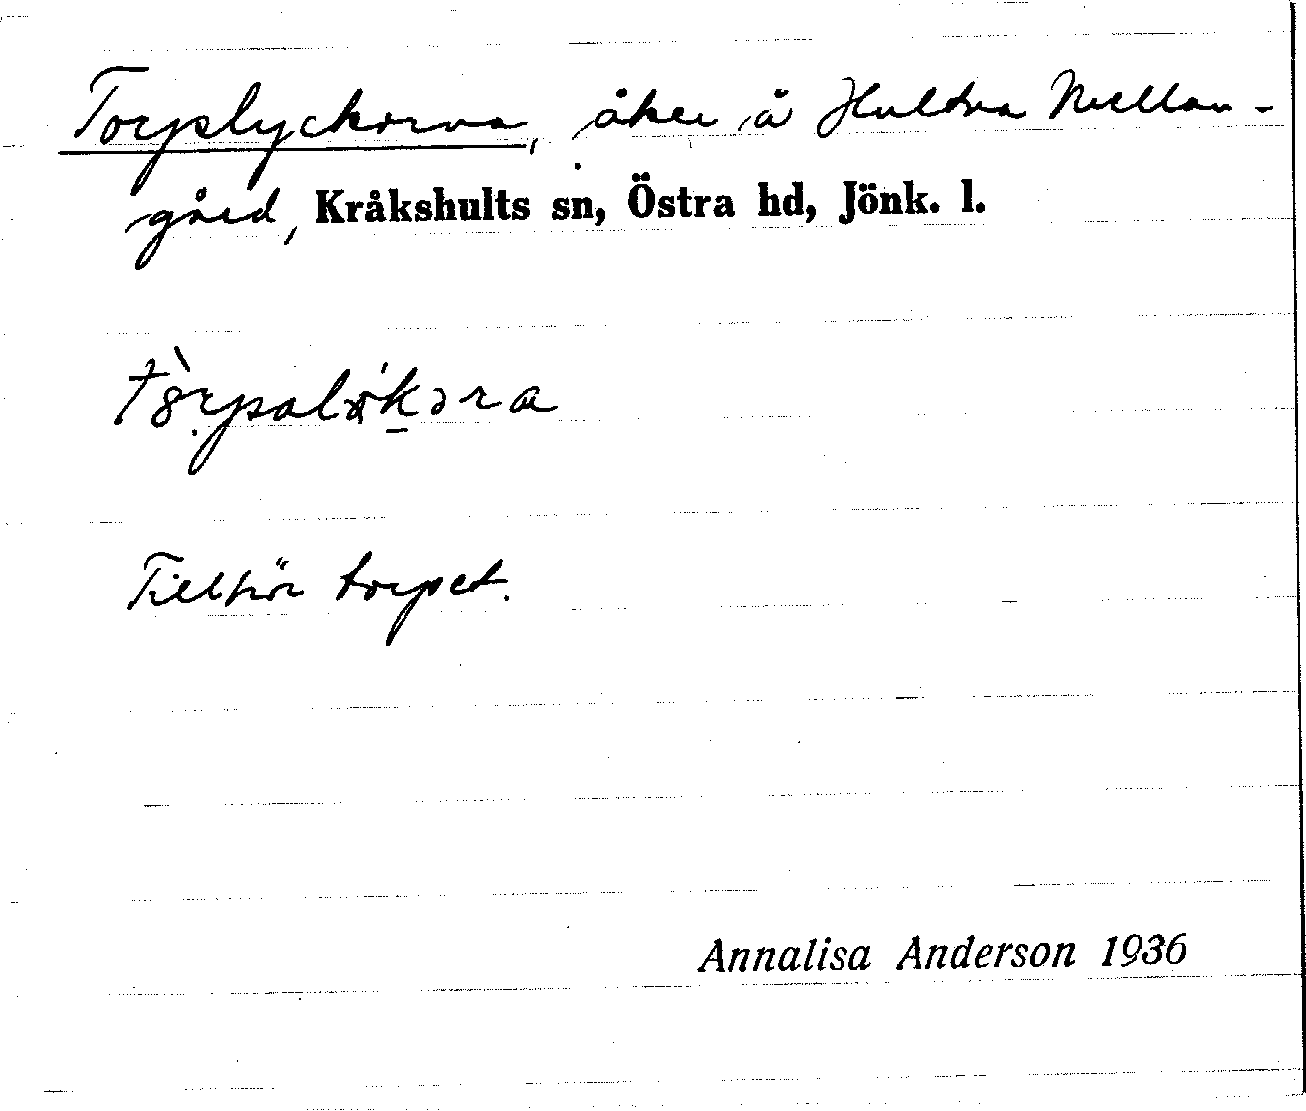 Torplyckorna, åker å Hultna Mellan-
gård, Kråkshults sn, Östra hd, Jönk. l.
Tillhör torpet.
Annalisa Anderson 1936